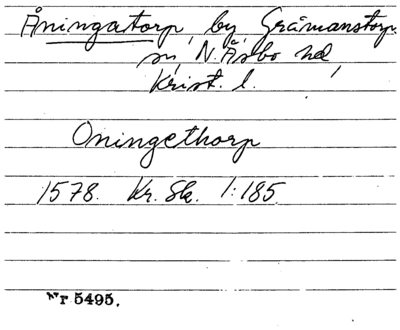 Åningatorp, by, Gråmanstorps
sn, N. Åsbo hd,
Krist. l.
Oningethorp
1578. Kr. Sk. 1:185
Nr 5495.